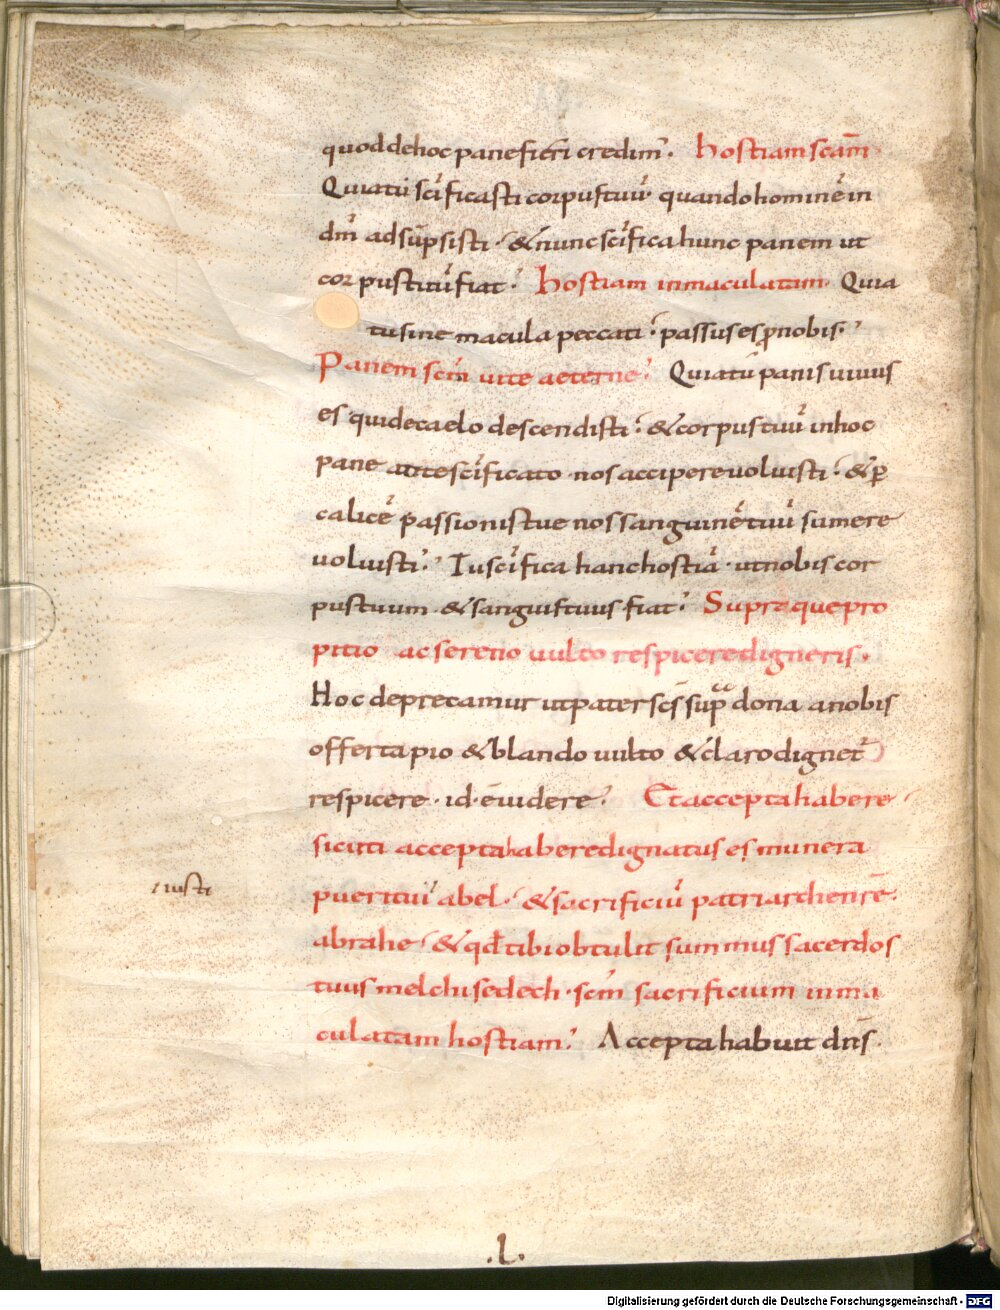 quod de hoc pane fieri credim̄. hostiam scām.
Quia tū scīficasti corpus tuū quando hominē in
dm̄ adsūpsisti. & nunc scīfica hunc panem ut
corpus tuū fiat. hostiam inmaculatam. Quia
tu sine macula peccati. passus es ꝓ nobis.
Panem scm̄ uite aeterne. Quia tu panis uiuus
es qui de caelo descendisti. & corpus tuū in hoc
pane a te scīficato nos accipere uoluisti. & ꝑ
calicē passionis tue nos sanguinē tuū sumere
uoluisti. Tu scīfica hanc hostiā. ut nobis cor
pus tuum & sanguis tuus fiat. Supra que pro
pitio ac sereno uulto respicere digneris.
Hoc deprecamur ut pater scs̄ supͣ dona a nobis
offerta pio & blando uulto & claro dignet᷑
respicere. id. ē uidere. Et accepta habere
sicuti accepta habere dignatus es munera
iusti
pueri tui abel. & sacrificiū patriarche nr̄e
abrahe. & qđ tibi obtulit summus sacerdos
tuus melchisedech. scm̄ sacrificium inma
culatam hostiam. Accepta habuit dn̄s.
.l.
Digitalisierung gefördert durch die Deutsche Forschungsgemeinschaft - DFG